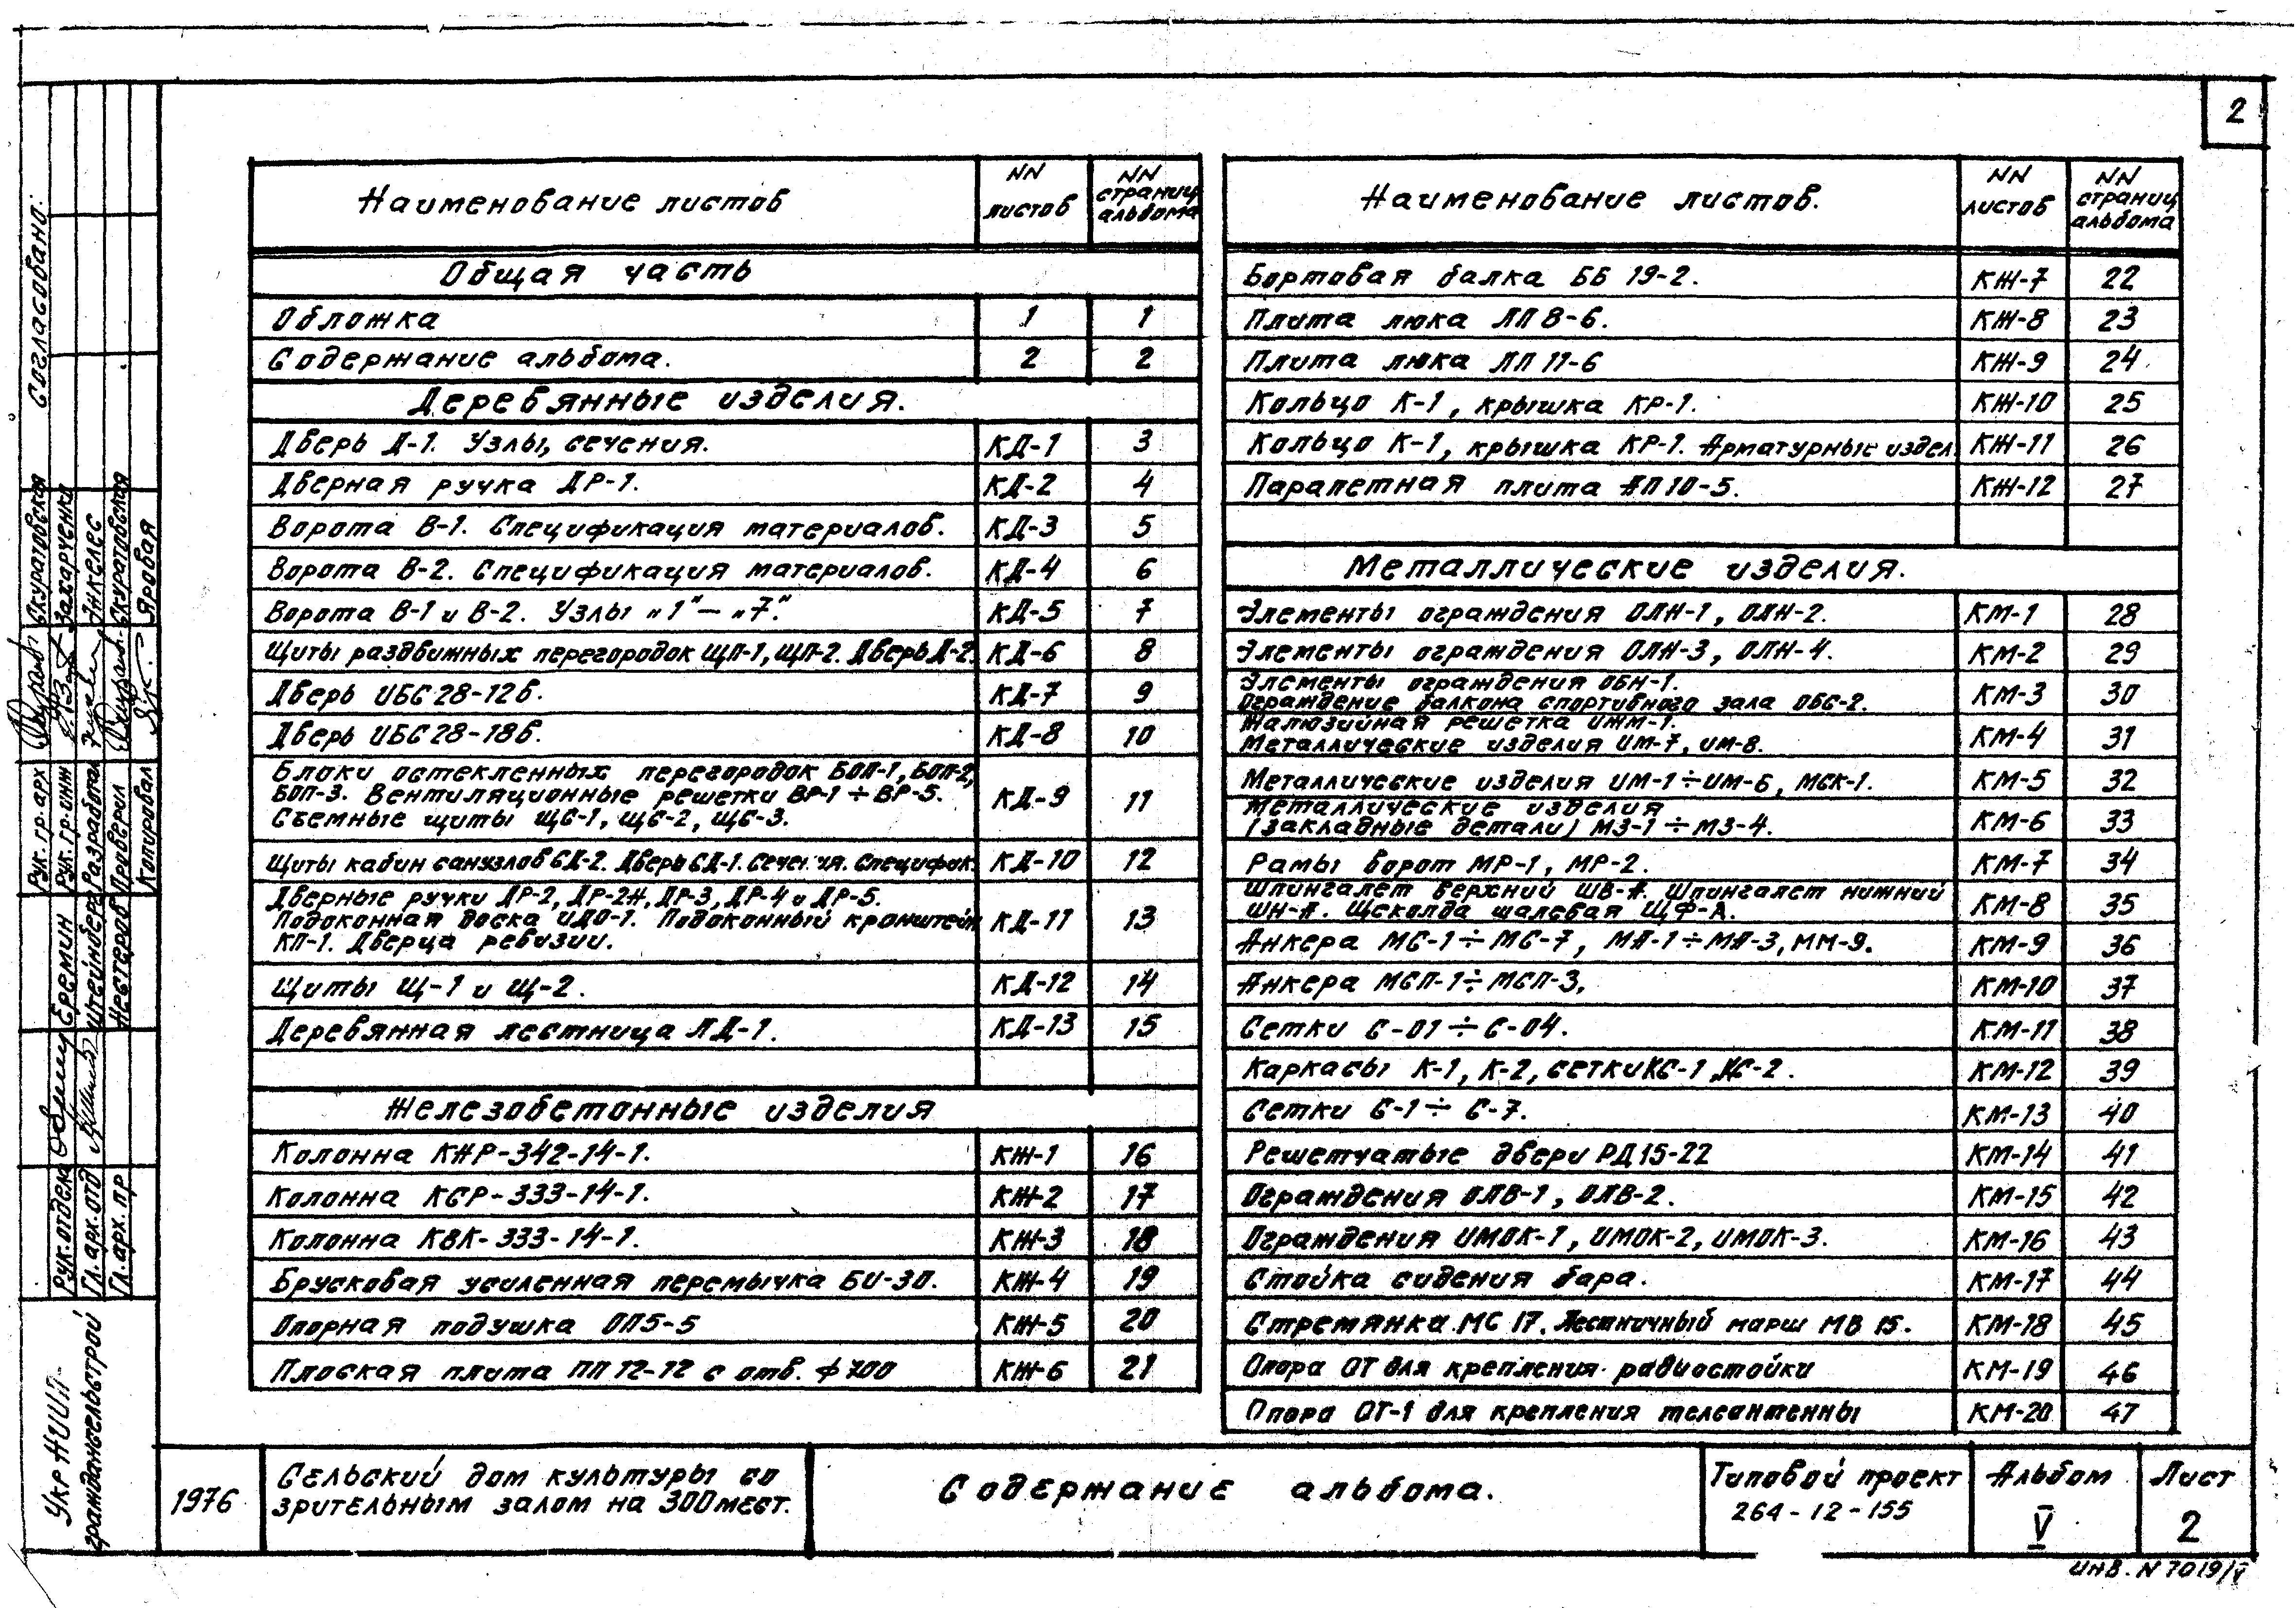 2
Наименование листов
NN листов
NN страниц альбома
Общая часть
Обложка 1 1
Содержание альбома. 2 2
Деревянные изделия.
Дверь Д-1. Узлы, сечения. КД-1 3
Дверная ручка ДР-1. КД-2 4
Ворота В-1. Спецификация материалов. КД-3 5
Ворота В-2. Спецификация материалов. КД-4 6
Ворота В-1 и В-2. Узлы „1" — „7". КД-5 7
Щиты раздвижных перегородок ЩП-1, ЩП-2. Дверь Д-2. КД-6 8
Дверь ИБС 28-12в. КД-7 9
Дверь ИБС 28-18в. КД-8 10
Блоки остекленных перегородок БОП-1, БОП-2,
БОП-3. Вентиляционные решетки ВР-1 ÷ ВР-5. КД-9 11
Съемные щиты ЩС-1, ЩС-2, ЩС-3.
Щиты кабин санузлов СД-2. Дверь СД-1. Сечения. Специфик. КД-10 12
Дверные ручки ДР-2, ДР-2Н, ДР-3, ДР-4 и ДР-5.
Подоконная доска ИДО-1. Подоконный кронштейн КД-11 13
КП-1. Дверца ревизии.
Щиты Щ-1 и Щ-2. КД-12 14
Деревянная лестница ЛД-1. КД-13 15
Железобетонные изделия
Колонна КНР-342-14-1. КЖ-1 16
Колонна КСР-333-14-1. КЖ-2 17
Колонна КВК-333-14-1. КЖ-3 18
Брусковая усиленная перемычка БИ-30. КЖ-4 19
Опорная подушка ОП5-5 КЖ-5 20
Плоская плита ПП 12-12 с отв. ф 700 КЖ-6 21
Наименование листов.
NN листов
NN страниц альбома
Бортовая балка ББ 19-2. КЖ-7 22
Плита люка ЛП 8-6. КЖ-8 23
Плита люка ЛП 11-6 КЖ-9 24
Кольцо К-1, крышка КР-1. КЖ-10 25
Кольцо К-1, крышка КР-1. Арматурные издел. КЖ-11 26
Парапетная плита АП 10-5. КЖ-12 27
Металлические изделия.
Элементы ограждения ОЛН-1, ОЛН-2. КМ-1 28
Элементы ограждения ОЛН-3, ОЛН-4. КМ-2 29
Элементы ограждения ОБН-1.
Ограждение балкона спортивного зала ОБС-2. КМ-3 30
Жалюзийная решетка ИЖМ-1.
Металлические изделия ИМ-7, ИМ-8. КМ-4 31
Металлические изделия ИМ-1 ÷ ИМ-6, МСК-1. КМ-5 32
Металлические изделия
(закладные детали) МЗ-1 ÷ МЗ-4. КМ-6 33
Рамы ворот МР-1, МР-2. КМ-7 34
Шпингалет верхний ШВ-А. Шпингалет нижний
ШН-А. Щеколда фалевая ЩФ-А. КМ-8 35
Анкера МС-1 ÷ МС-7, МА-1 ÷ МА-3, ММ-9. КМ-9 36
Анкера МСП-1 ÷ МСП-3. КМ-10 37
Сетки С-01 ÷ С-04. КМ-11 38
Каркасы К-1, К-2, сетки КС-1, КС-2. КМ-12 39
Сетки С-1 ÷ С-7. КМ-13 40
Решетчатые двери РД 15-22 КМ-14 41
Ограждения ОЛВ-1, ОЛВ-2. КМ-15 42
Ограждения ИМОК-1, ИМОК-2, ИМОК-3. КМ-16 43
Стойка сидения бара. КМ-17 44
Стремянка МС 17. Лестничный марш МВ 15. КМ-18 45
Опора ОТ для крепления радиостойки КМ-19 46
Опора ОТ-1 для крепления телеантенны КМ-20 47
Согласовано:
Рук. гр. арх Скуратовская
Рук. гр. инж Захарченко
Разработал Энкелес
Проверил Скуратовская
Копировал Яровая
Рук. отдела Еремин
Гл. арх. отд Штейнберг
Гл. арх. пр Нестеров
УкрНИИП-
граждансельстрой
1976
Сельский дом культуры со
зрительным залом на 300 мест.
Содержание альбома.
Типовой проект
264-12-155
Альбом
V
Лист
2
Инв. N 7019/V